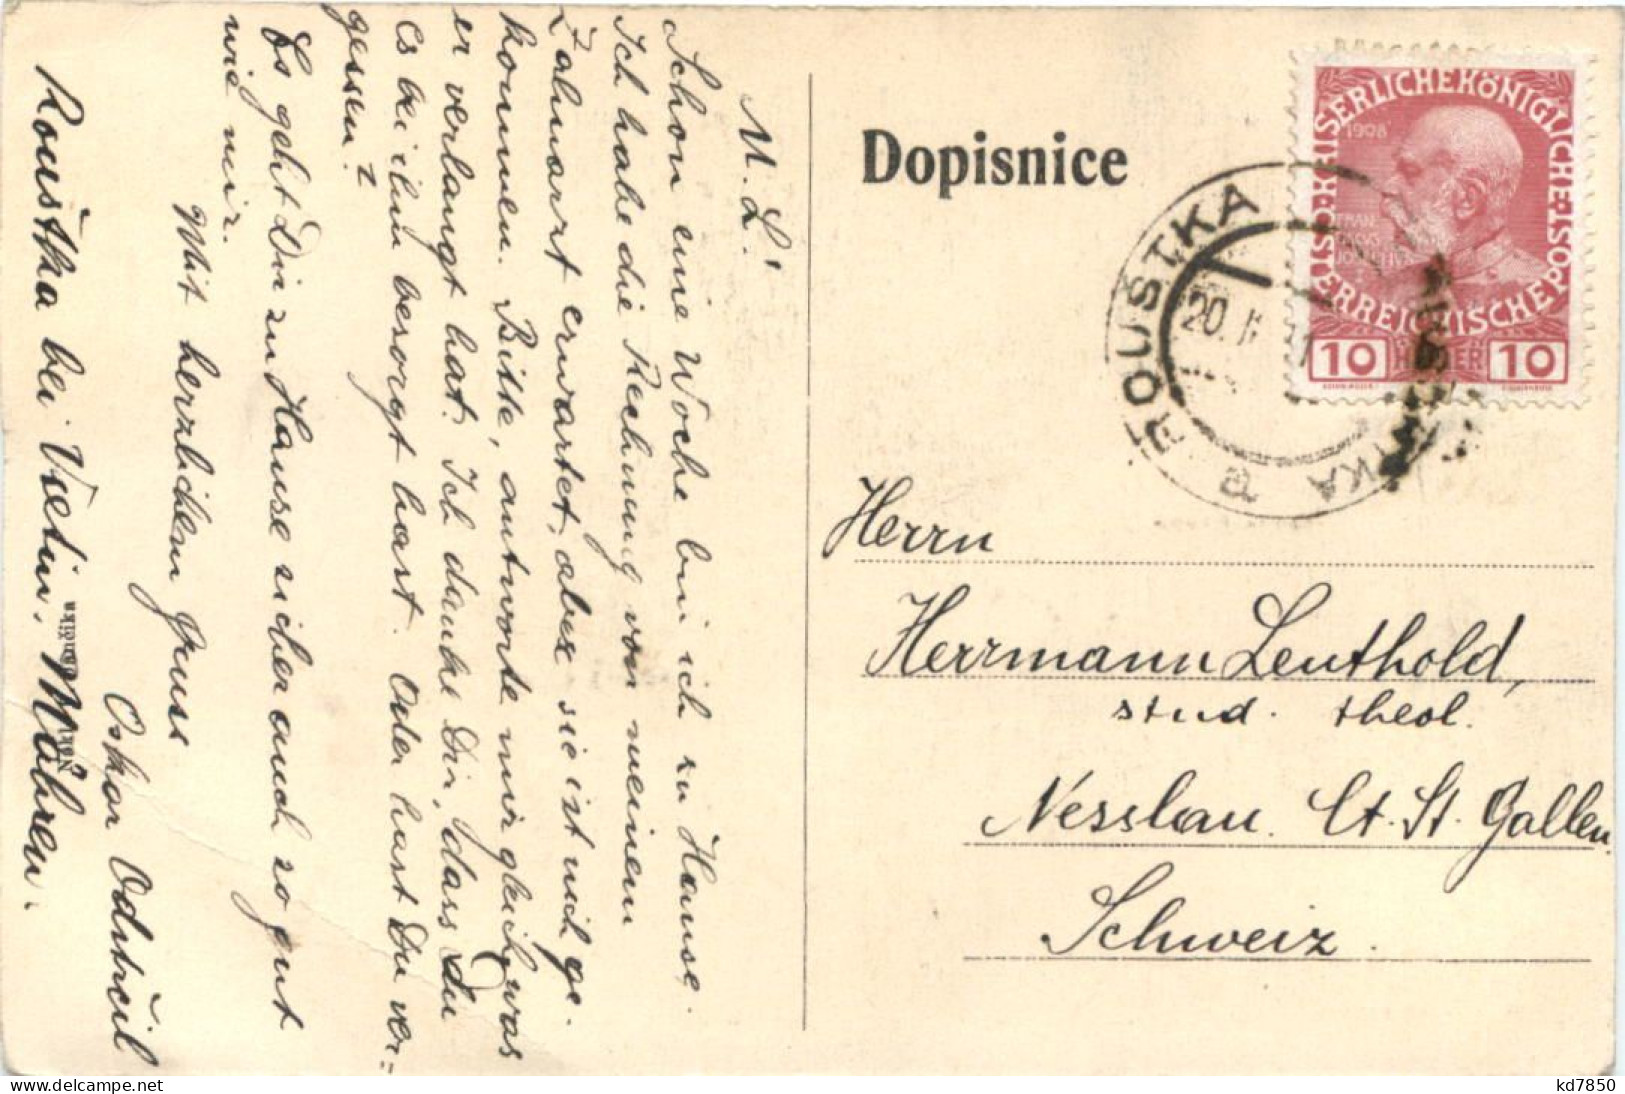 M. L.!
Schon eine Woche bin ich zu Hause.
Ich habe die Rechnung von meinem
Zahnarzt erwartet, aber sie ist nich ge-
kommen. Bitte, antworte mir gleich was
er verlangt hat. Ich danke Dir, dass du
es bei ihm besorgt hast. Oder hast Du ver=
gessen?
Es geht Dir zu Hause sicher auch so gut
wie mir.
Mit herzlichem Gruss
Oskar Odstrčil
Rouštka bei Vsetin. Mähren.
Dopisnice
KAISERLICHEKÖNIGLICHE
ÖSTERREICHISCHEPOST
1908
10 HELLER 10
ROUŠTKA
20.
Herrn
Herrmann Leuthold,
stud. theol.
Nesslau. Ct. St. Gallen.
Schweiz.
kd7850